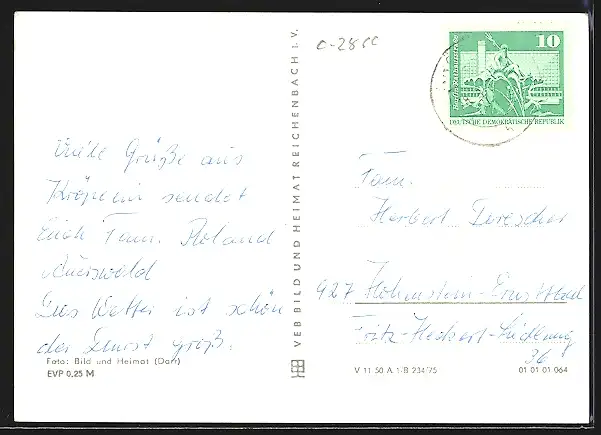 Viele Grüße aus
Kröpelin sendet
Euch Fam. Roland
Auerswald
Das Wetter ist schön
der Durst groß.
Foto: Bild und Heimat (Darr)
EVP 0,25 M
VEB BILD UND HEIMAT REICHENBACH I. V.
10
DEUTSCHE DEMOKRATISCHE REPUBLIK
Fam.
Herbert Drescher
927 Hohenstein-Ernstthal
Fritz-Heckert-Siedlung
36
V 11 50 A 1-B 234/75
01 01 01 064